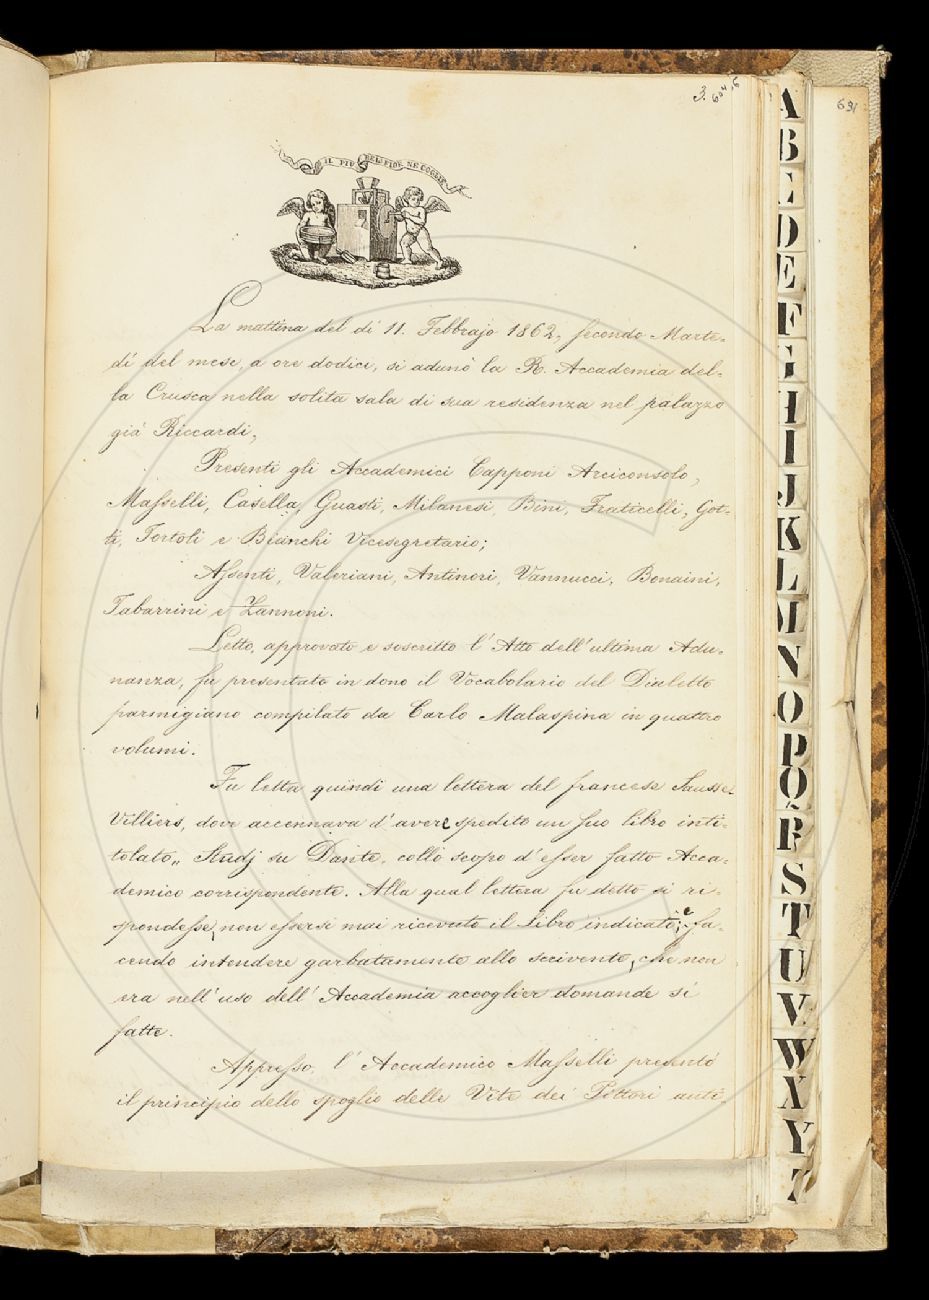 3.
691
IL PIÙ BEL FIOR NE COGLIE
La mattina del dì 11. Febbrajo 1862, secondo Marte-
dì del mese, a ore dodici, si adunò la R. Accademia del-
la Crusca nella solita sala di sua residenza nel palazzo
già Riccardi,
Presenti gli Accademici Capponi Arciconsolo,
Masselli, Casella, Guasti, Milanesi, Bini, Fraticelli, Got-
ti, Tortoli e Bianchi Vicesegretario;
Assenti, Valeriani, Antinori, Vannucci, Bonaini,
Tabarrini e Zannoni.
Letto, approvato e soscritto l'Atto dell'ultima Adu-
nanza, fu presentato in dono il Vocabolario del Dialetto
parmigiano compilato da Carlo Malaspina in quattro
volumi.
Fu letta quindi una lettera del francese Sausse-
Villiers, dove accennava d'avere spedito un suo libro inti-
tolato „ Studj su Dante, collo scopo d'esser fatto Acca-
demico corrispondente. Alla qual lettera fu detto si ri-
spondesse, non essersi mai ricevuto il libro indicato; e fa-
cendo intendere garbatamente allo scrivente, che non
era nell'uso dell'Accademia accoglier domande sì
fatte.
Appresso, l'Accademico Masselli presentò
il principio dello spoglio delle Vite dei Pittori anti-
A
B
C
D
E
F
G
H
I
J
K
L
M
N
O
P
Q
R
S
T
U
V
W
X
Y
Z